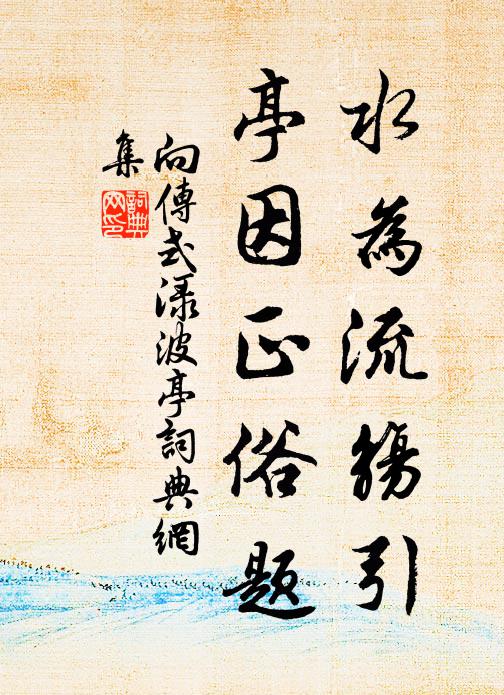 水為流觴引
亭因正俗題
向傳式淥波亭詞典網
集
詞典
网印